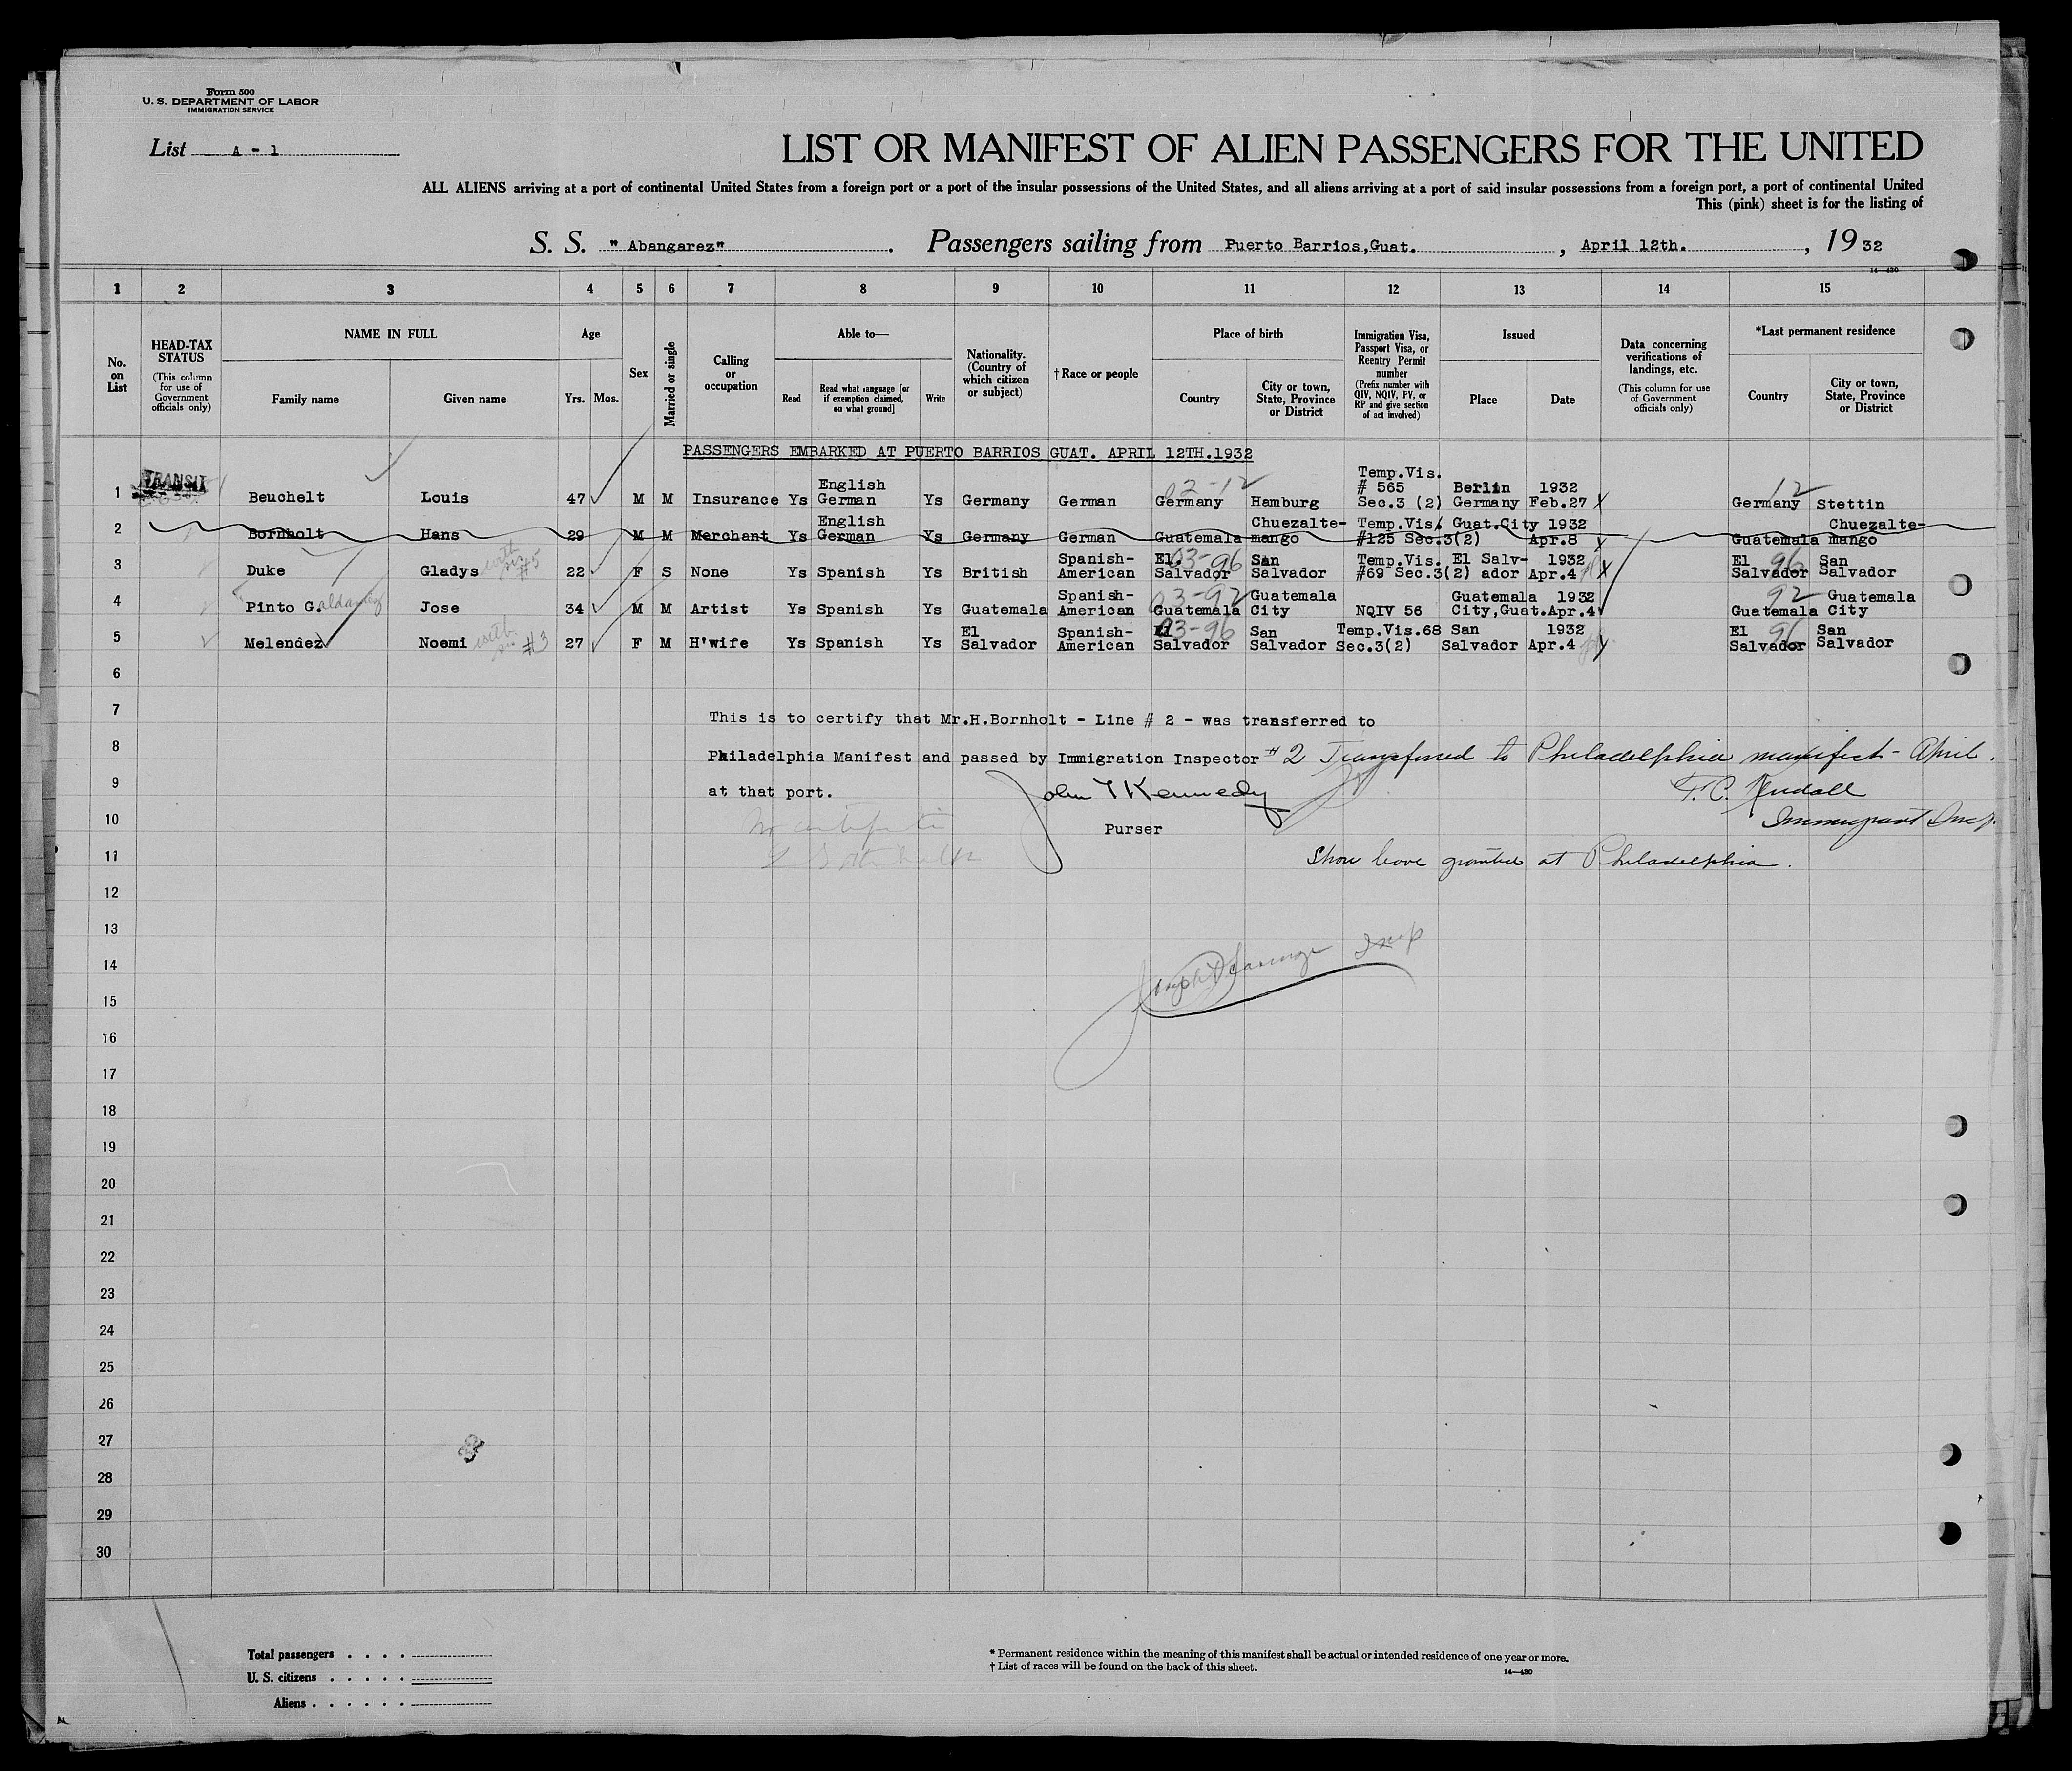 Form 500
U. S. DEPARTMENT OF LABOR
IMMIGRATION SERVICE
List A - 1
LIST OR MANIFEST OF ALIEN PASSENGERS FOR THE UNITED
ALL ALIENS arriving at a port of continental United States from a foreign port or a port of the insular possessions of the United States, and all aliens arriving at a port of said insular possessions from a foreign port, a port of continental United
This (pink) sheet is for the listing of
S. S. " Abangarez" . Passengers sailing from Puerto Barrios,Guat. , April 12th. , 19 32
14-430
1 2 3 4 5 6 7 8 9 10 11 12 13 14 15
No. on List
HEAD-TAX STATUS (This column for use of Government officials only)
NAME IN FULL
Family name Given name
Age
Yrs. Mos.
Sex
Married or single
Calling or occupation
Able to—
Read Read what language [or if exemption claimed, on what ground] Write
Nationality. (Country of which citizen or subject)
†Race or people
Place of birth
Country City or town, State, Province or District
Immigration Visa, Passport Visa, or Reentry Permit number (Prefix number with QIV, NQIV, PV, or RP and give section of act involved)
Issued
Place Date
Data concerning verifications of landings, etc. (This column for use of Government officials only)
*Last permanent residence
Country City or town, State, Province or District
PASSENGERS EMBARKED AT PUERTO BARRIOS GUAT. APRIL 12TH.1932
TRANSIT
1 Beuchelt Louis 47 M M Insurance Ys English German Ys Germany German Germany 02-12 Hamburg Temp.Vis. # 565 Sec.3 (2) Berlin Germany 1932 Feb.27 Germany 12 Stettin
2 Bornholt Hans 29 M M Merchant Ys English German Ys Germany German Guatemala Chuezalte-mango Temp.Vis. #125 Sec.3(2) Guat.City 1932 Apr.8 Guatemala Chuezalte-mango
3 Duke Gladys with #5 22 F S None Ys Spanish Ys British Spanish-American El Salvador 03-96 San Salvador Temp.Vis. #69 Sec.3(2) El Salv-ador 1932 Apr.4 El Salvador 96 San Salvador
4 Pinto G. Jose 34 M M Artist Ys Spanish Ys Guatemala Spanish-American Guatemala 03-92 Guatemala City NQIV 56 Guatemala City,Guat. 1932 Apr.4 Guatemala 92 Guatemala City
5 Melendez Noemi with #3 27 F M H'wife Ys Spanish Ys El Salvador Spanish-American El Salvador 03-96 San Salvador Temp.Vis.68 Sec.3(2) San Salvador 1932 Apr.4 El Salvador 96 San Salvador
6
7 This is to certify that Mr.H.Bornholt - Line # 2 - was transferred to
8 Philadelphia Manifest and passed by Immigration Inspector #2 Transferred to Philadelphia manifest - April
9 at that port. John T Kennedy F. C. Kendall
10 Purser Immigrant Insp.
11 Shore leave granted at Philadelphia.
12
13
14 Insp
15
16
17
18
19
20
21
22
23
24
25
26
27
28
29
30
Total passengers . . . .
U. S. citizens . . . . .
Aliens . . . . . .
* Permanent residence within the meaning of this manifest shall be actual or intended residence of one year or more.
† List of races will be found on the back of this sheet.
14-430